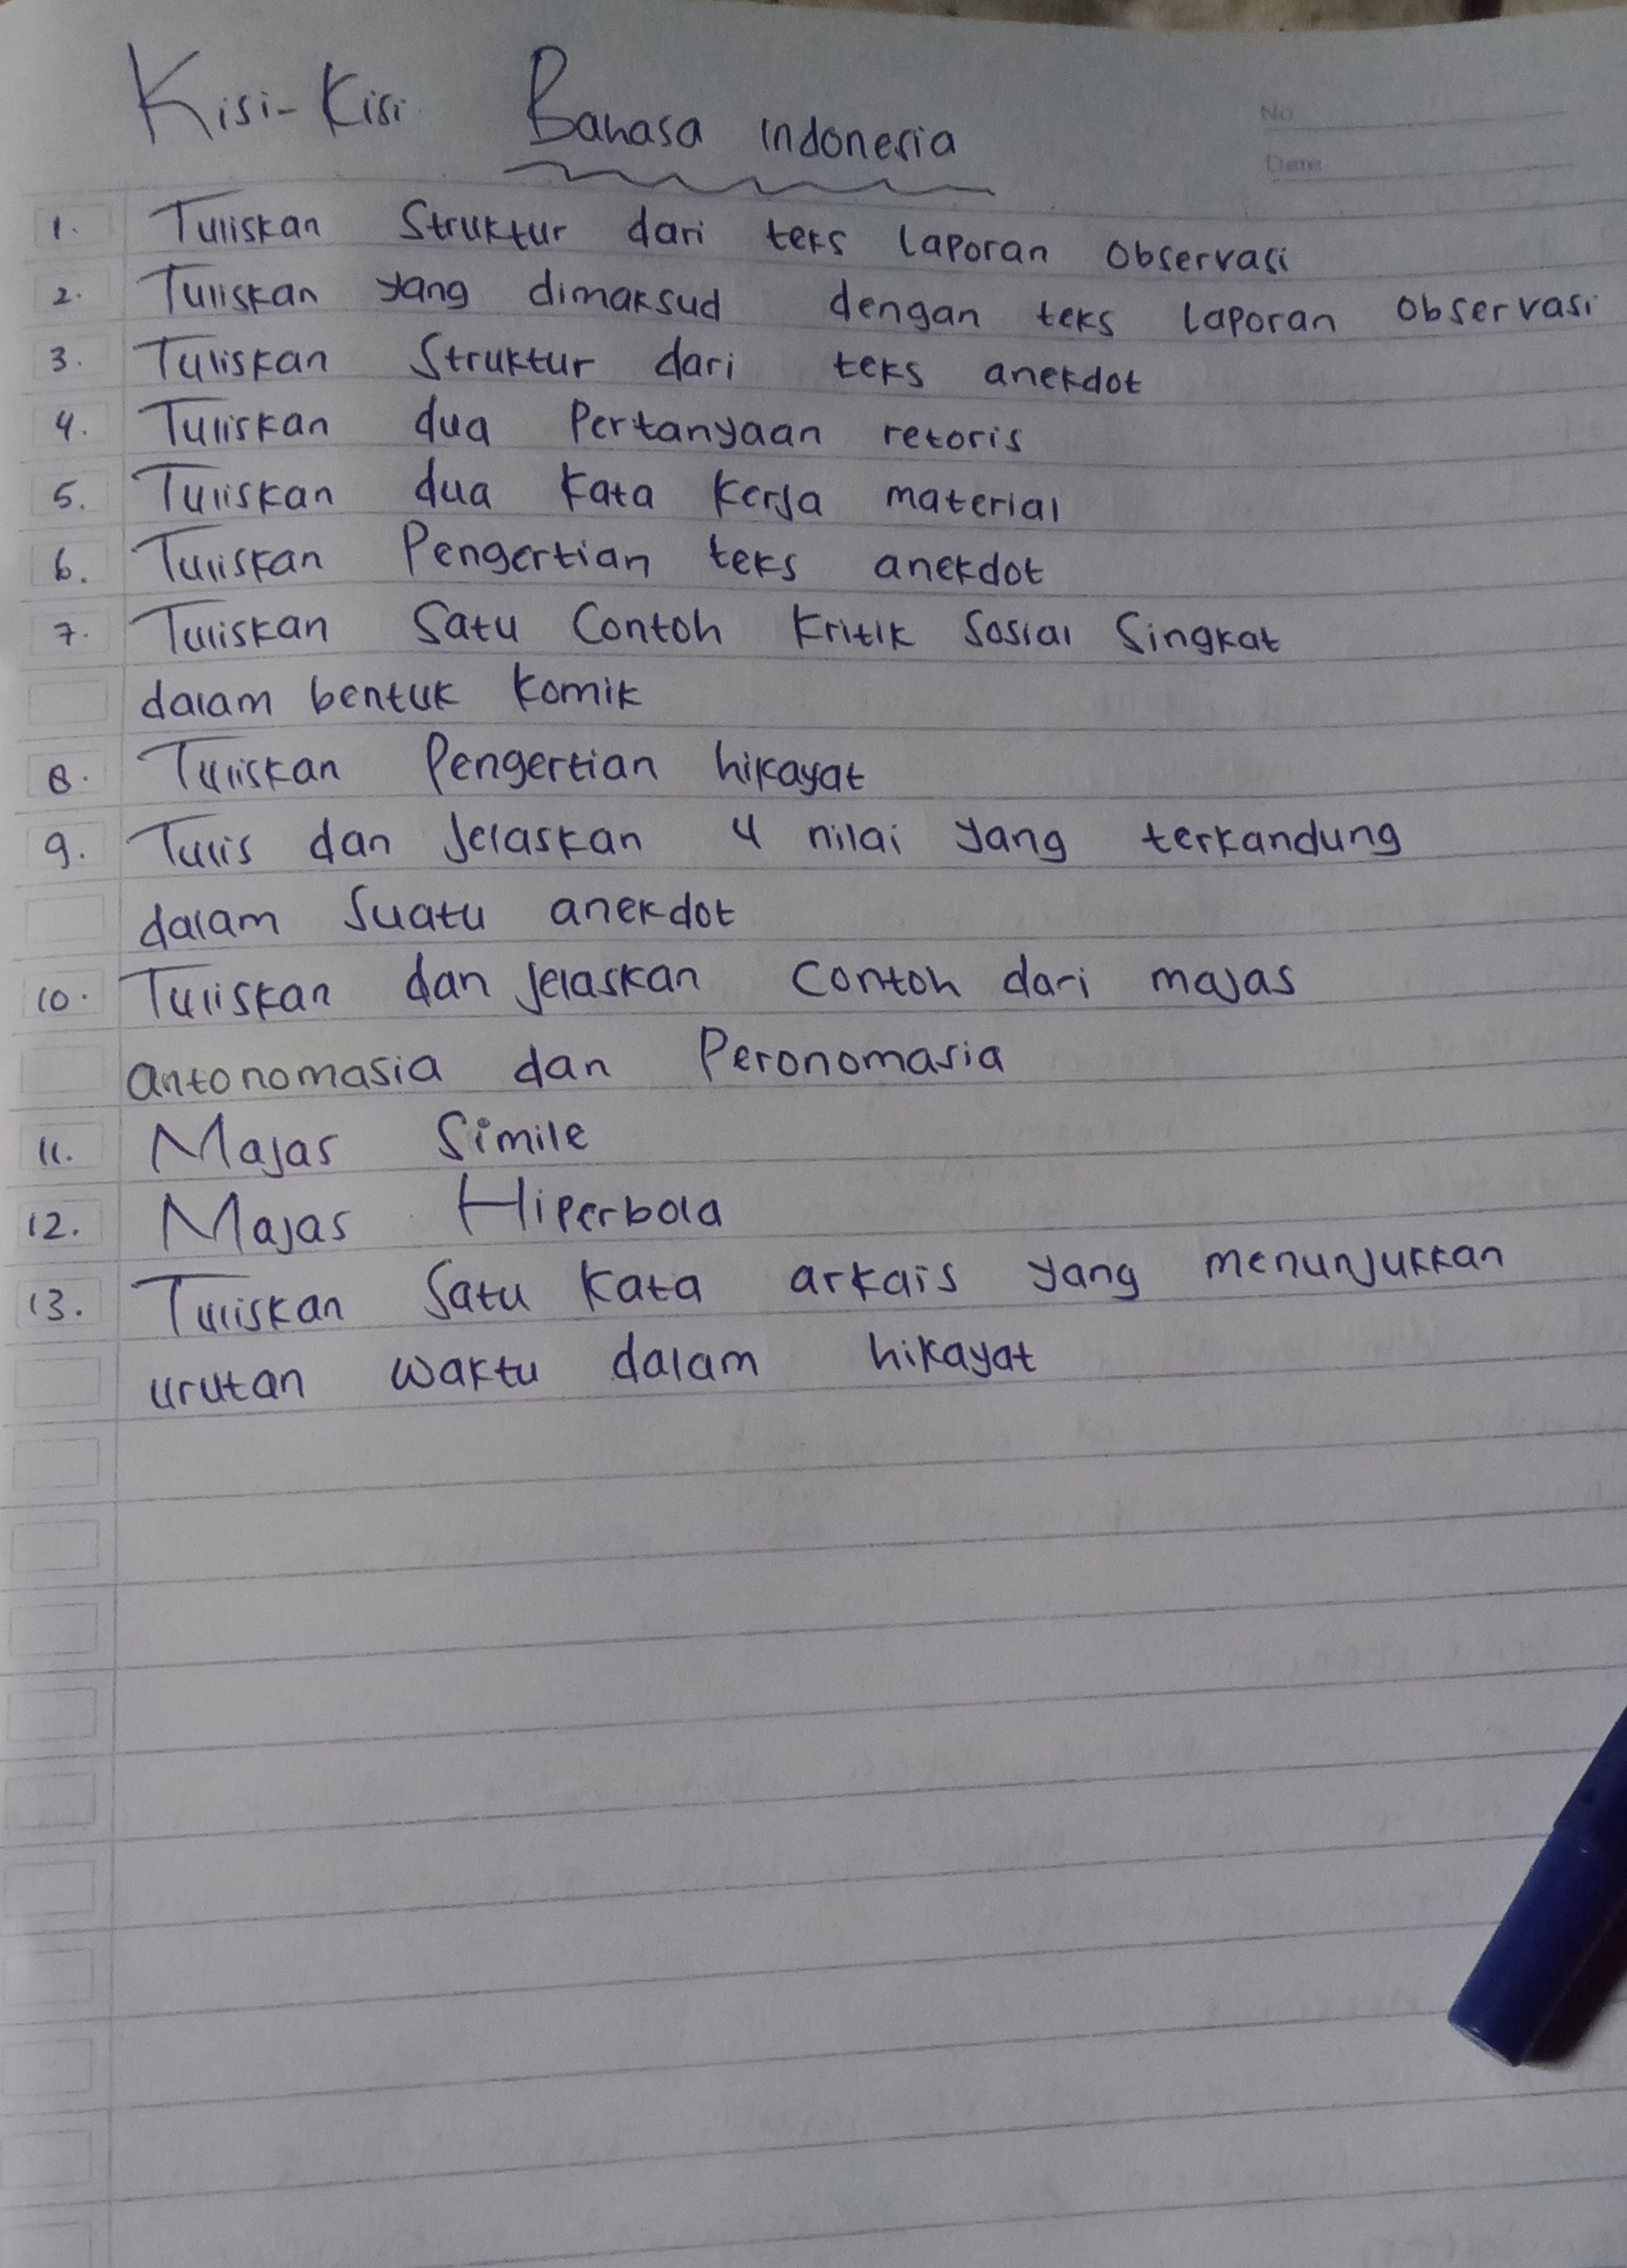 Kisi-Kisi Bahasa indonesia
No
Date
1. Tuliskan Struktur dari teks laporan observasi
2. Tuliskan yang dimaksud dengan teks laporan observasi
3. Tuliskan Struktur dari teks anekdot
4. Tuliskan dua Pertanyaan retoris
5. Tuliskan dua kata kerja material
6. Tuliskan Pengertian teks anekdot
7. Tuliskan Satu Contoh kritik Sosial Singkat
dalam bentuk komik
8. Tuliskan Pengertian hikayat
9. Tulis dan Jelaskan 4 nilai yang terkandung
dalam Suatu anekdot
10. Tuliskan dan jelaskan Contoh dari majas
antonomasia dan Peronomasia
11. Majas Simile
12. Majas Hiperbola
13. Tuliskan Satu kata arkais yang menunjukkan
urutan waktu dalam hikayat